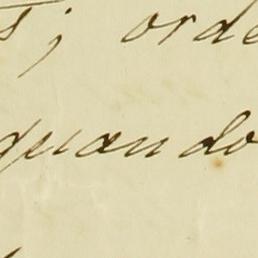 ; orde
quando